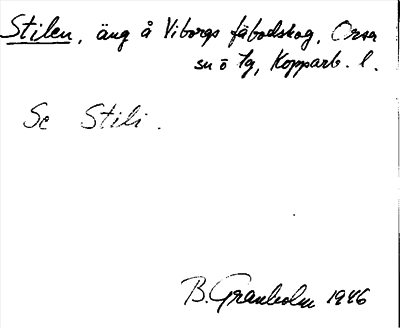 Stilen, äng å Viborgs fäbodskog, Orsa
sn ö lg, Kopparb. l.
Se Stili.
B. Granholm 1946